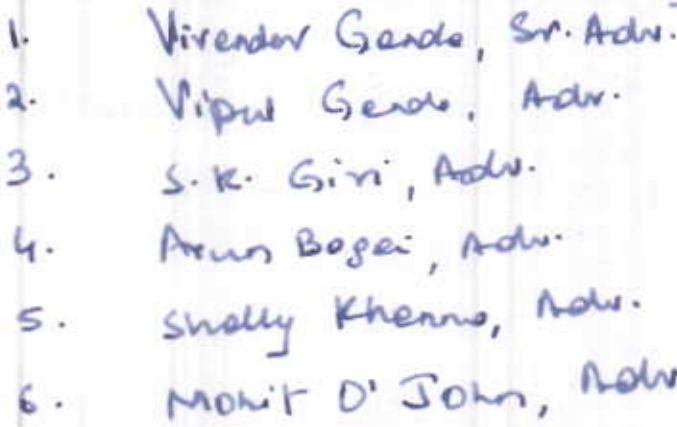 1. Virender Ganda, Sr. Adv.
2. Vipul Ganda, Adv.
3. S.K. Giri, Adv.
4. Arun Bagai, Adv.
5. Shelly Khanna, Adv.
6. Mohit D' John, Adv